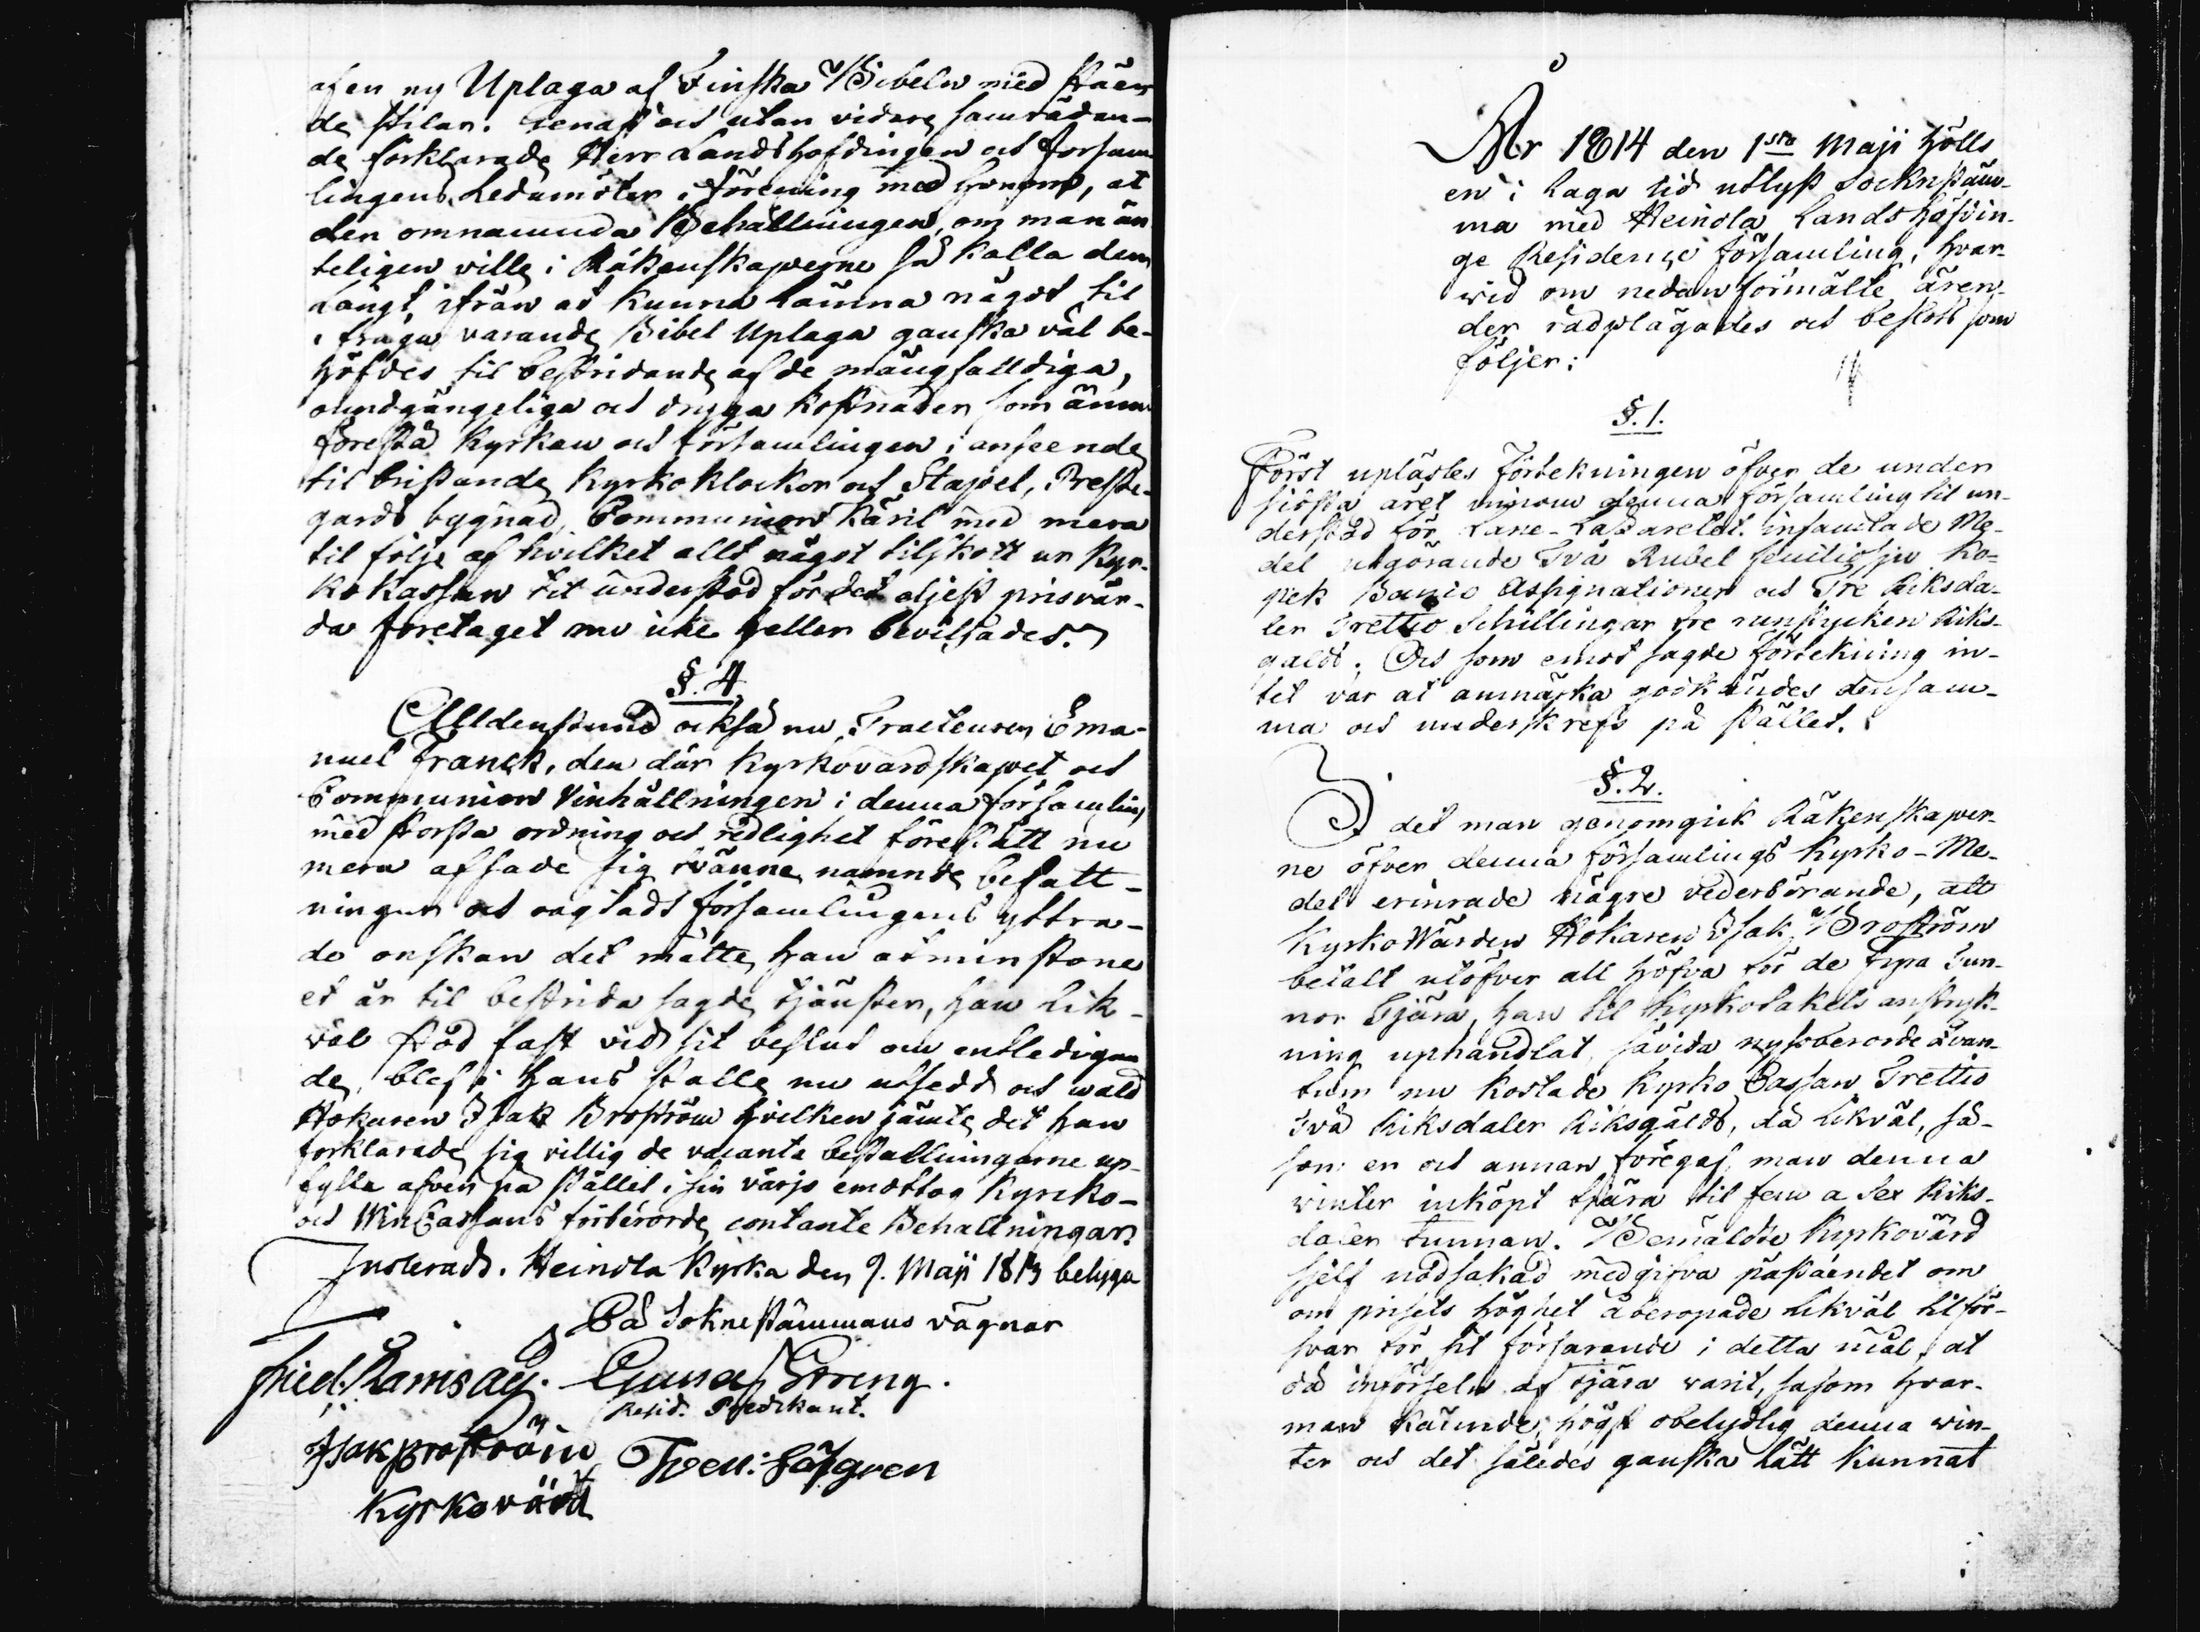 af en ny Uplaga af Finska Bibeln med ståen
de stilar. Senast och utan vidare samrådan-
de förklarade Herr Landshöfdingen och Försam
lingens Ledamöter i förening med honom, at
den omnämnda Behållningen, om man än
teligen ville i Räkenskaperne så kalla den
långt ifrån at kunna lämna något til
i fråga varande Bibel Uplaga ganska väl be-
höfdes til bestridande af de mångfalldiga,
oundgängeliga och dryga kostnader som ännu
förestå Kyrkan och församlingen i anseende
til bristande Kyrkoklockor och Stapel, Preste-
gårds bygnad, Communions Käril med mera
til följe af hvilket allt något tilskott ur Kyr-
ko Kassan til understöd för det oljest prisvär-
da företaget nu icke heller beviljades.
§. 4.
Alldenstund också nu Tracteuren Ema-
nuel Franck, den där Kyrkovärdskapet och
Communion Vinhållningen i denna församling
med största ordning och redlighet förestått nu
mera afsade sig tvänne nämnde befatt-
ningar och oagtadt församlingens yttra-
de önskan det måtte han åtminstone
et år til bestrida sagde tjänster, han lik-
väl stod fast vid sit beslut om entledigan
de, blef i hans ställe nu utsedd och wald
Hökaren Isak Broström hvilken jämte det han
förklarade sig villig de vacanta beställningarne up-
fylla äfven på stället i sin värjo emottog Kyrcko-
och Win Cassans förberörde contante Behållningar.
Justerads. Heinola Kyrka den 9. Maji 1813 betyga
På Soknestämmans vägnar
Fried. Ramsay. Gustaf Streng.
Resid. Predikant.
Isak Broström Löfgren
Kyrkovärd
År 1814 den 1sta Maji hölls
en i Laga tid utlyst Sockenstäm-
ma med Heinola Landshöfdin-
ge Residence församling, hvar-
wid om nedanförmälte ären-
der rådplägades och beslöts som
följer:
§. 1.
Först uplästes förtekningen öfver de under
sidsta året inom denna församling til un-
derstöd för Läne-Lazarettet insamlade Me-
del utgörande Två Rubel femtiosju Ko-
pek Banco Assignationer och Tre Riksda-
ler Trettio Schillingar tre runstycken Riks-
gäldt. Och som emot sagde förtekning in-
tet var at anmärka godkändes densam-
ma och underskrefs på stället.
§. 2.
I det man genomgick Räkenskaper-
ne öfver denna församlings Kyrko-Me-
del erinrade någre vederbörande, att
Kyrko Wärden Hökaren Isak Broström
betalt utöfver all höfva för de fyra Tun-
nor Tjära, han til Kyrkotakets anstryk-
ning uphandlat, såvida nyssberörde qvan-
tum nu kostade Kyrko Cassan Trettio
två Riksdaler Riksgäldt, då likväl, så-
som en och annan föregaf, man denna
winter inköpt tjära til fem a Sex Riks-
daler tunnan. Bemäldte Kyrkovärd
sjelf nödsakad medgifva påståendet om
om prisets höghet åberopade likväl til för-
svar för sit förfarande i detta mål, at
då införseln af tjära varit, såsom hvar-
man kände, högst obetydlig denna win-
ter och det således ganska lätt kunnat